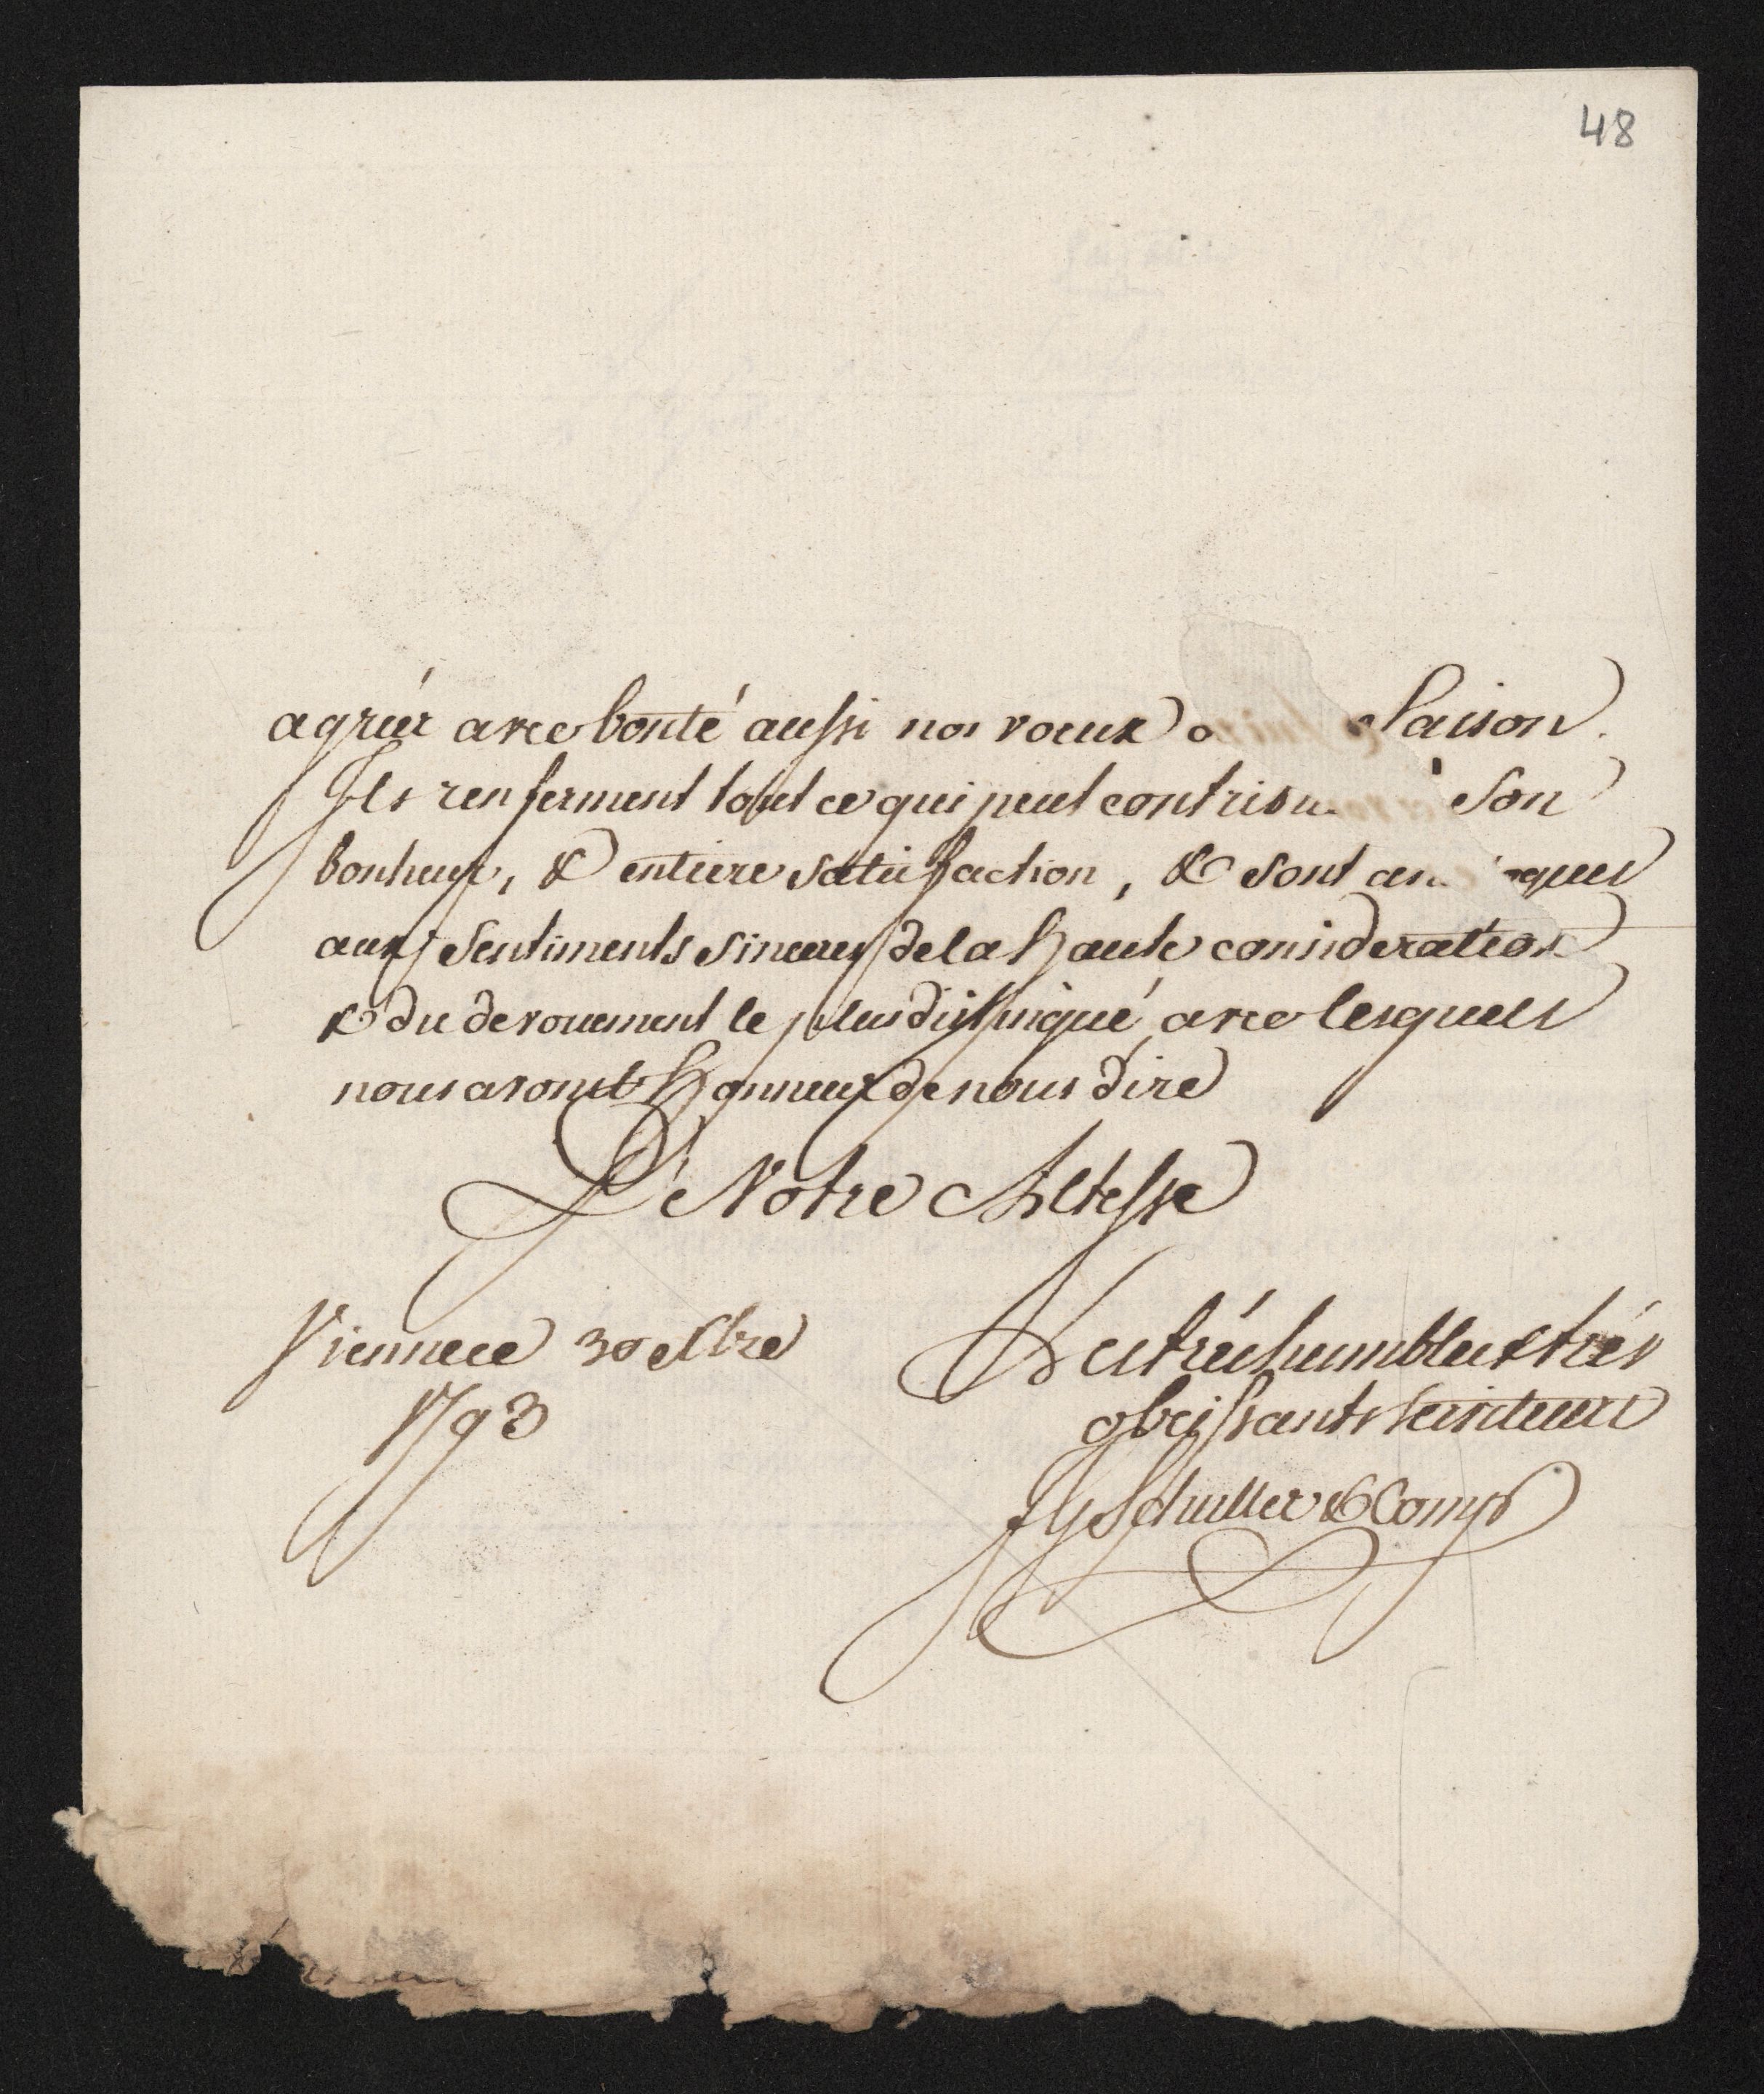 48
agréér avec bonté aussi nos voeux Saison.
Ils renferment tout ce qui peut contribu Son
bonheur, & entiere satisfaction, & sont
aux Sentiments sinceres de la haute consideration
& du devouement le plus distingué avec lesquels
nous avons l'honneur de nous dire
De Votre Altesse
Vienne ce 30 Xbre
1793
Les trés humbles & trés
obeissants Serviteurs
Schuller & Comp